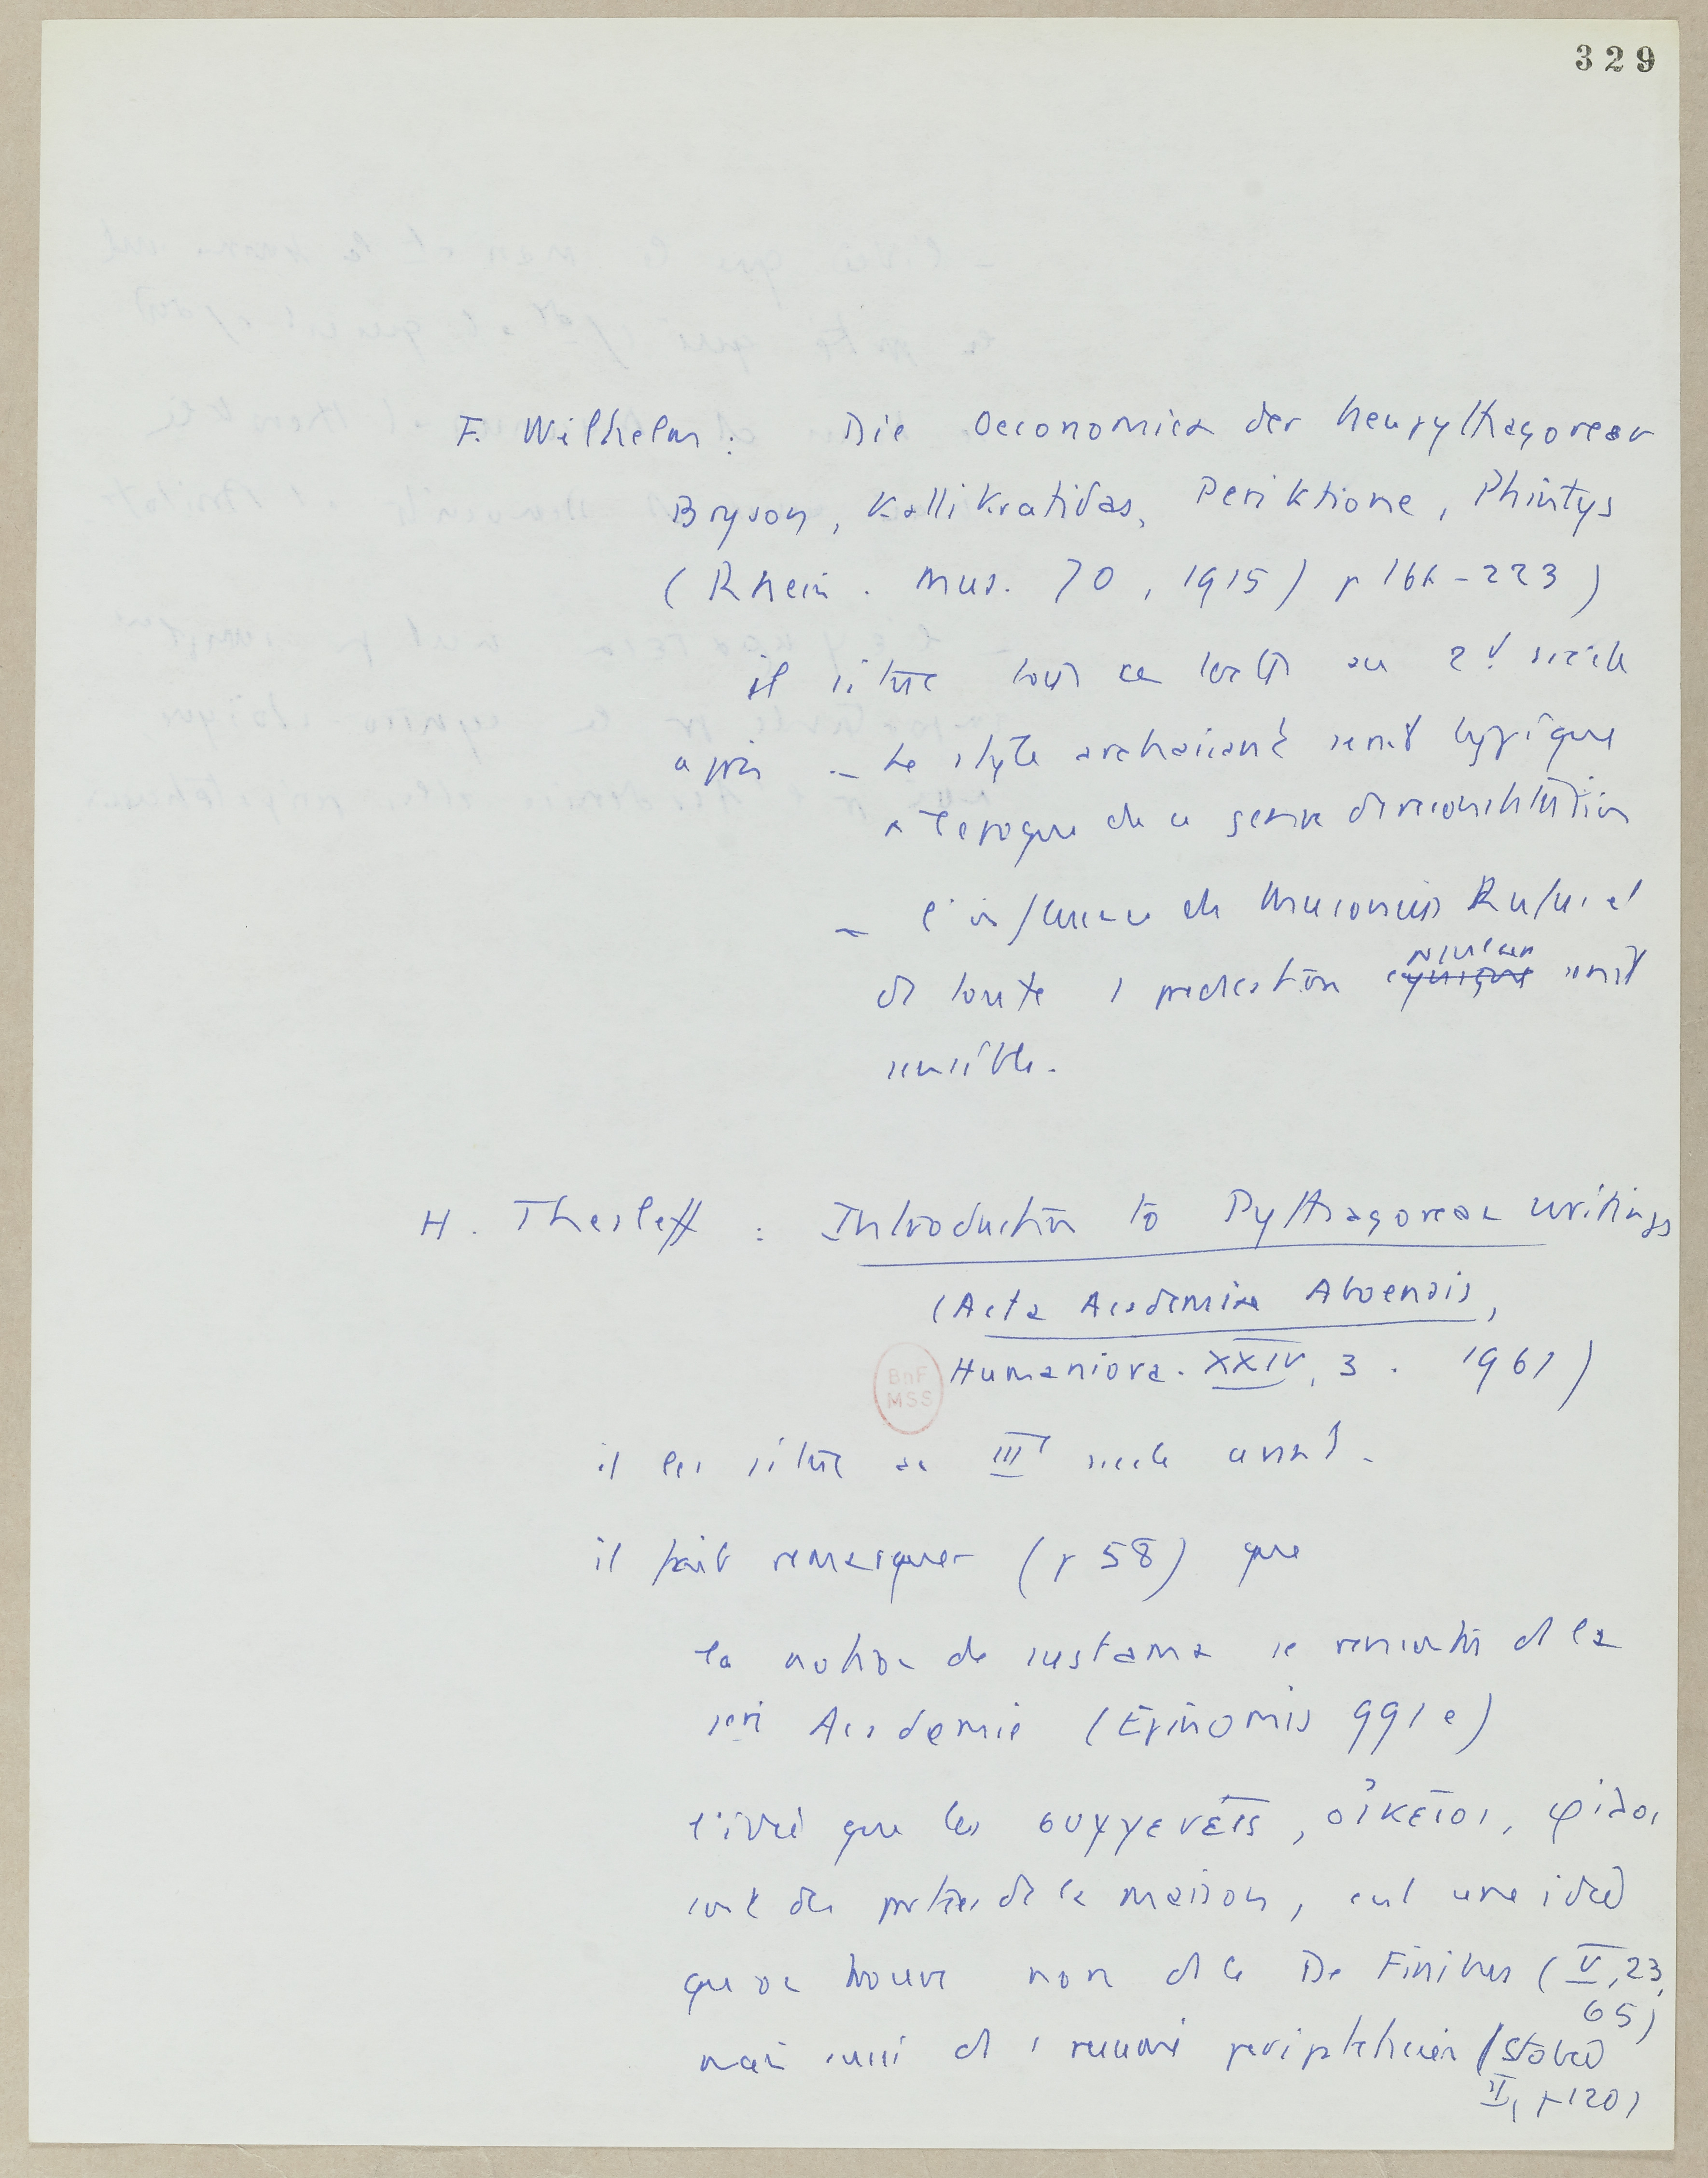 329
F. Wilhelm : Die Oeconomica der Neupythagoreer
Bryson, Kallikratidas, Periktione, Phintys
(Rhein. Mus. 70, 1915) p 164-223)
il situe tous ces textes au 2d siècle
après - le style archaisant serait typique
a l'epoque de ce genre de reconstitution
- l'influence de Musonius Rufus et
de toute la predication cynique stoicienne serait
sensible.
H. Thesleff : Introduction to Pythagorean writings
(Acta Academiae Aboensis,
BnF
MSS
Humaniora. XXIV, 3. 1961)
il les situe au IIIe siecle avant.
il fait remarquer (p 58) que
la notion de sustama se rencontre ds la
Academie (Epinomis 991 e)
l'idée que les συγγενεῖς, οἰκεῖοι, φίλοι
sont des parties de la maison, est une idée
qu on trouve non ds le De Finibus (V, 23,
65)
mais aussi ds le resumé peripateticien (Stobée
II, p 120)